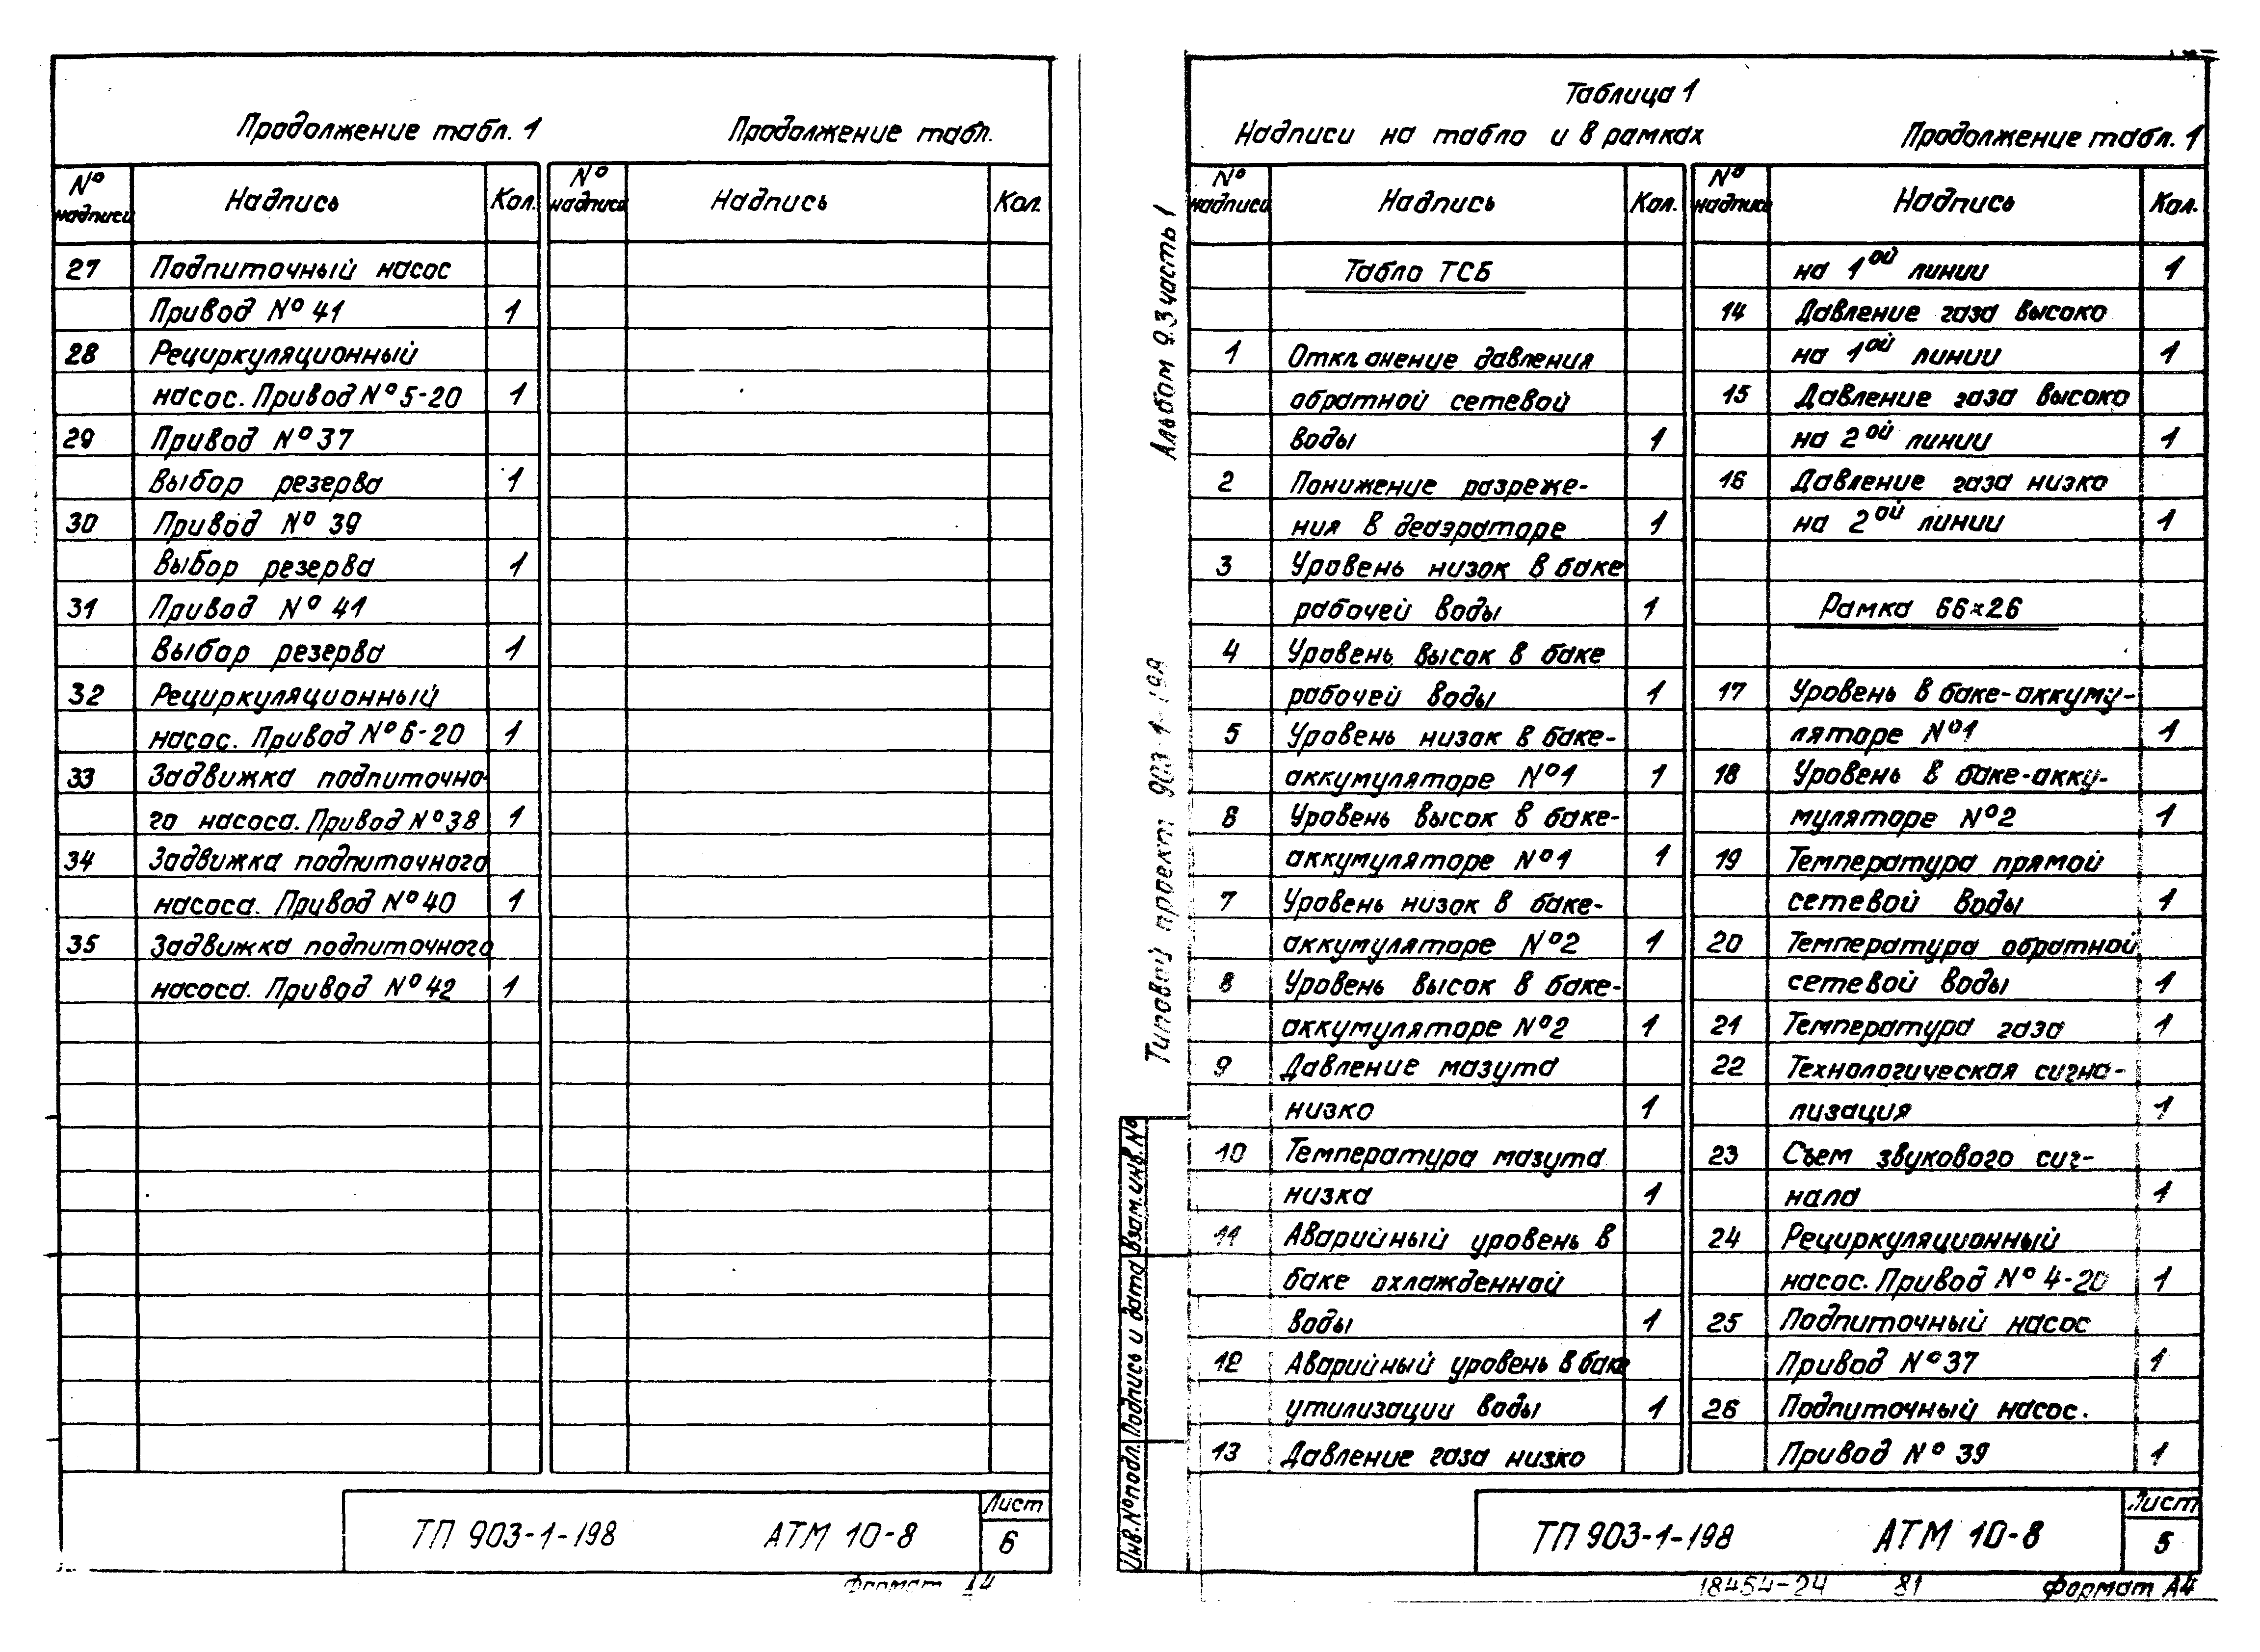 Продолжение табл. 1
Продолжение табл.
№ надписи Надпись Кол. № надписи Надпись Кол.
27 Подпиточный насос
Привод № 41 1
28 Рециркуляционный
насос. Привод № 5-20 1
29 Привод № 37
Выбор резерва 1
30 Привод № 39
Выбор резерва 1
31 Привод № 41
Выбор резерва 1
32 Рециркуляционный
насос. Привод № 6-20 1
33 Задвижка подпиточно-
го насоса. Привод № 38 1
34 Задвижка подпиточного
насоса. Привод № 40 1
35 Задвижка подпиточного
насоса. Привод № 42 1
ТП 903-1-198 АТМ 10-8
Лист
6
Формат А4
Альбом 9.3 часть 1
Типовой проект 903-1-198
Инв. № подл. Подпись и дата Взам. инв. №
Таблица 1
Надписи на табло и в рамках
№ надписи Надпись Кол.
Табло ТСБ
1 Отклонение давления
обратной сетевой
воды 1
2 Понижение разреже-
ния в деаэраторе 1
3 Уровень низок в баке
рабочей воды 1
4 Уровень высок в баке
рабочей воды 1
5 Уровень низок в баке-
аккумуляторе №1 1
6 Уровень высок в баке-
аккумуляторе №1 1
7 Уровень низок в баке-
аккумуляторе №2 1
8 Уровень высок в баке-
аккумуляторе №2 1
9 Давление мазута
низко 1
10 Температура мазута
низка 1
11 Аварийный уровень в
баке охлажденной
воды 1
12 Аварийный уровень в баке
утилизации воды 1
13 Давление газа низко
Продолжение табл. 1
№ надписи Надпись Кол.
на 1ой линии 1
14 Давление газа высоко
на 1ой линии 1
15 Давление газа высоко
на 2ой линии 1
16 Давление газа низко
на 2ой линии 1
Рамка 66×26
17 Уровень в баке-аккуму-
ляторе №1 1
18 Уровень в баке-акку-
муляторе №2 1
19 Температура прямой
сетевой воды 1
20 Температура обратной
сетевой воды 1
21 Температура газа 1
22 Технологическая сигна-
лизация 1
23 Съем звукового сиг-
нала 1
24 Рециркуляционный
насос. Привод № 4-20 1
25 Подпиточный насос
Привод № 37 1
26 Подпиточный насос.
Привод № 39 1
ТП 903-1-198 АТМ 10-8
Лист
5
18454-24 81 Формат А4